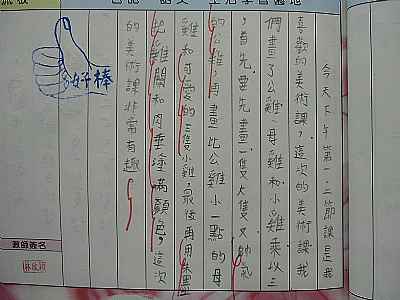 今天下午第一、二節課是我
喜歡的美術課，這次的美術課我
們畫了公雞、母雞和小雞乘以三
，首先，要先畫一隻大隻又帥氣
的公雞，再畫比公雞小一點的母
雞和可愛的三隻小雞，最後再用朱墨
把雞關和肉垂塗滿顏色，這次
的美術課非常有趣
好棒
教師簽名